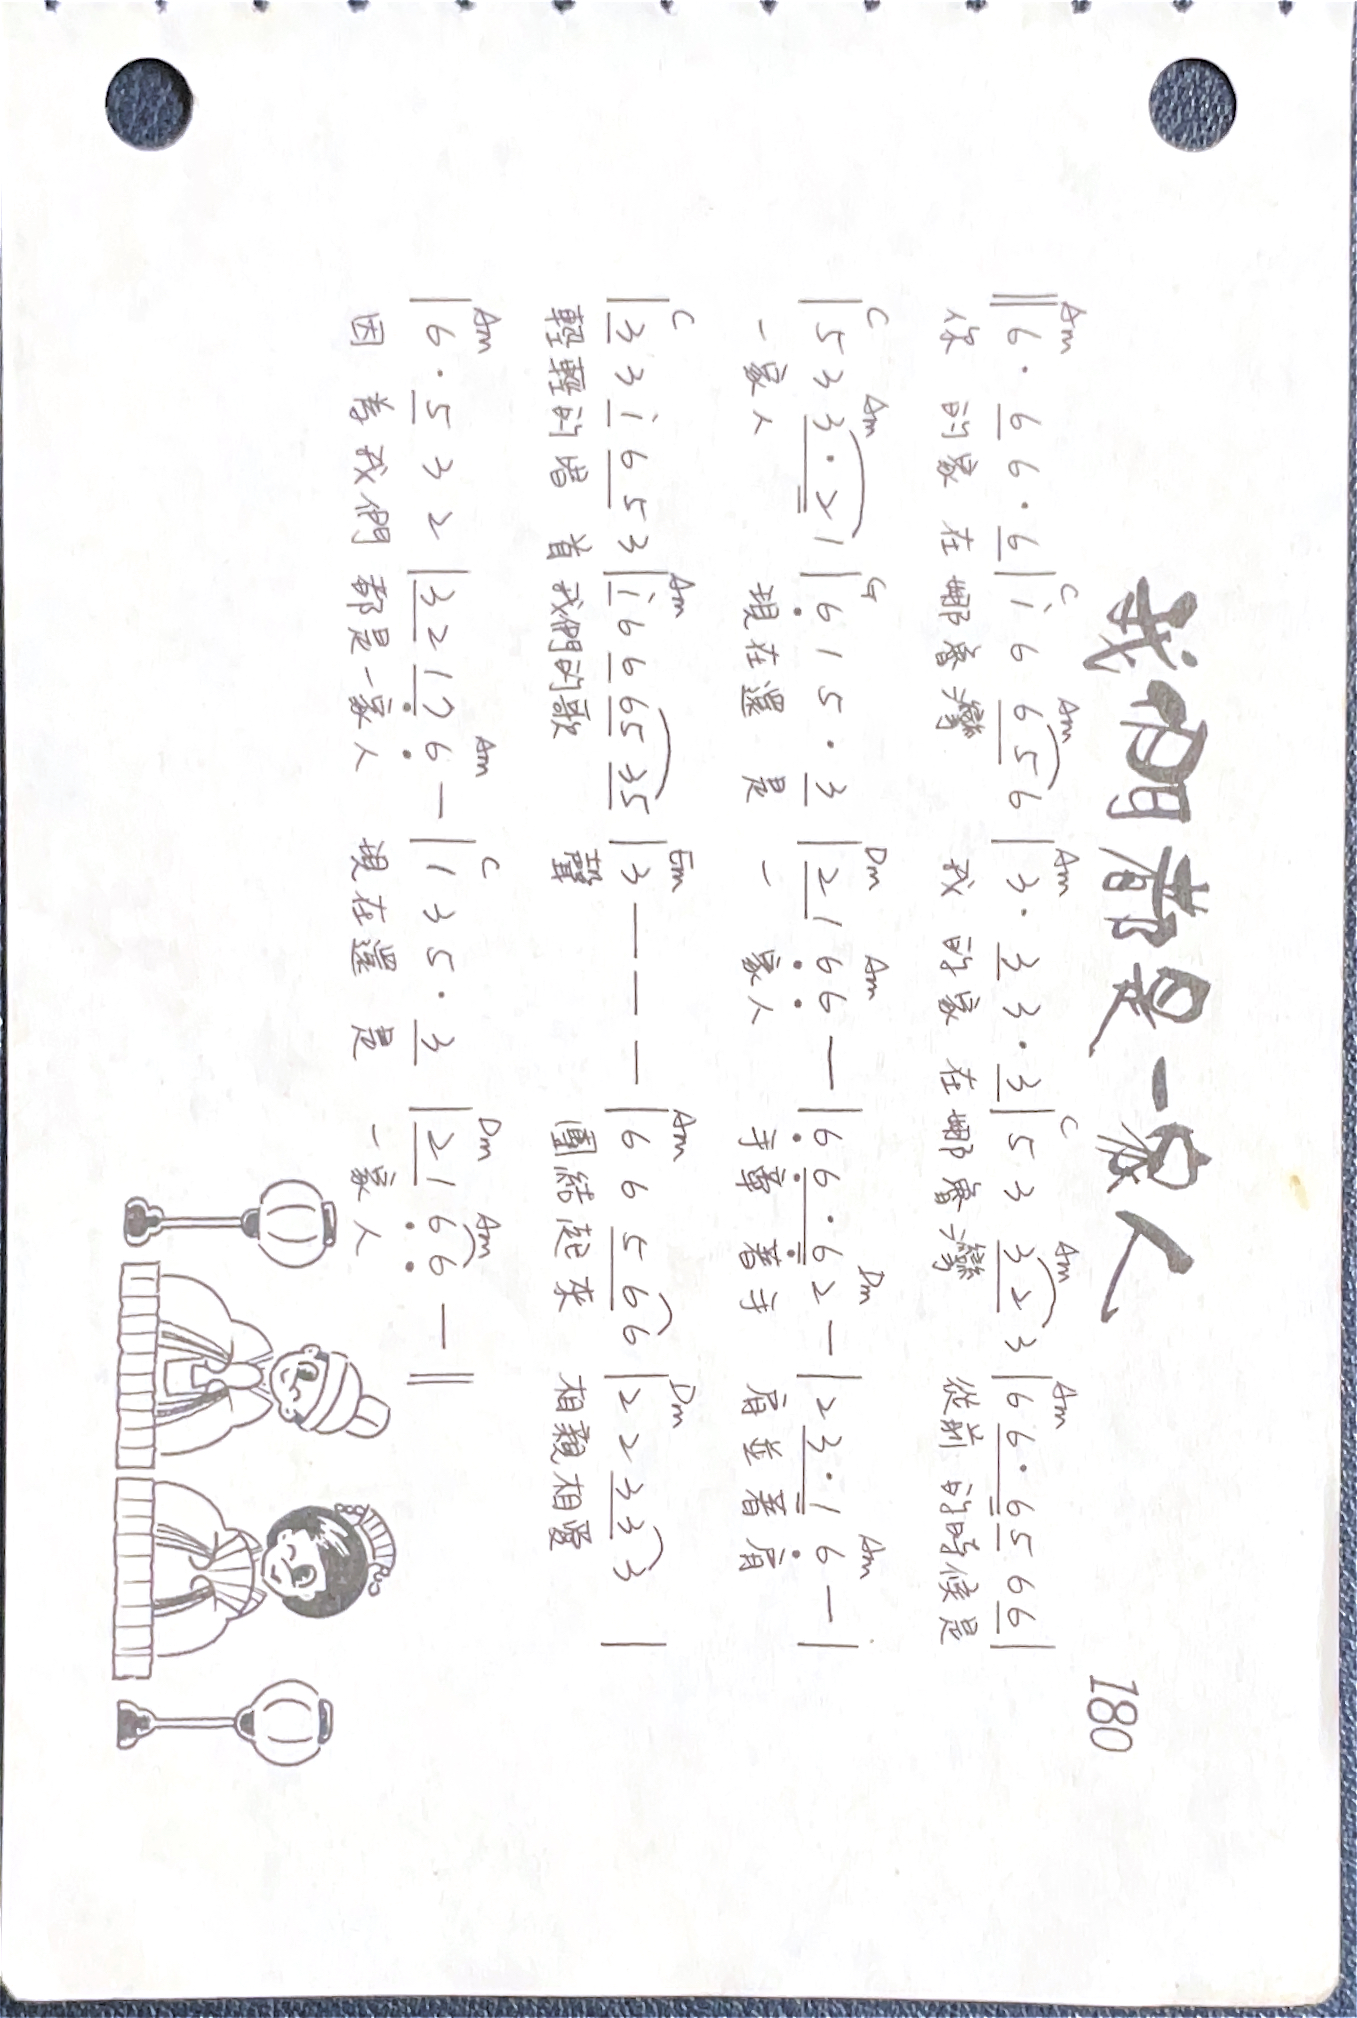 我們都是一家人
180
Am C Am Am C Am Am
‖ 6 · 6 6 · 6 | i 6 6 5 6 | 3 · 3 3 · 3 | 5 3 3 2 3 | 6 6 · 6 5 6 6 |
你 的家 在娜魯灣 我 的家 在娜魯灣 從前 的時候是
C Am G Dm Am Dm Am
| 5 3 3 · 2 1 | 6 1 5 · 3 | 2 1 6 6 — | 6 6 · 6 2 — | 2 3 · 1 6 — |
一家人 現在還 是 一 家人 手牽 著手 肩並著肩
C Am Em Am Dm
| 3 3 i 6 5 3 | i 6 6 6 5 3 5 | 3 — — — | 6 6 5 6 6 | 2 2 3 3 3 |
輕輕的唱 首我們的歌 聲 團結起來 相親相愛
Am Am C Dm Am
| 6 · 5 3 2 | 3 2 1 7 6 — | 1 3 5 · 3 | 2 1 6 6 — ‖
因 為我們 都是一家人 現在還 是 一家人